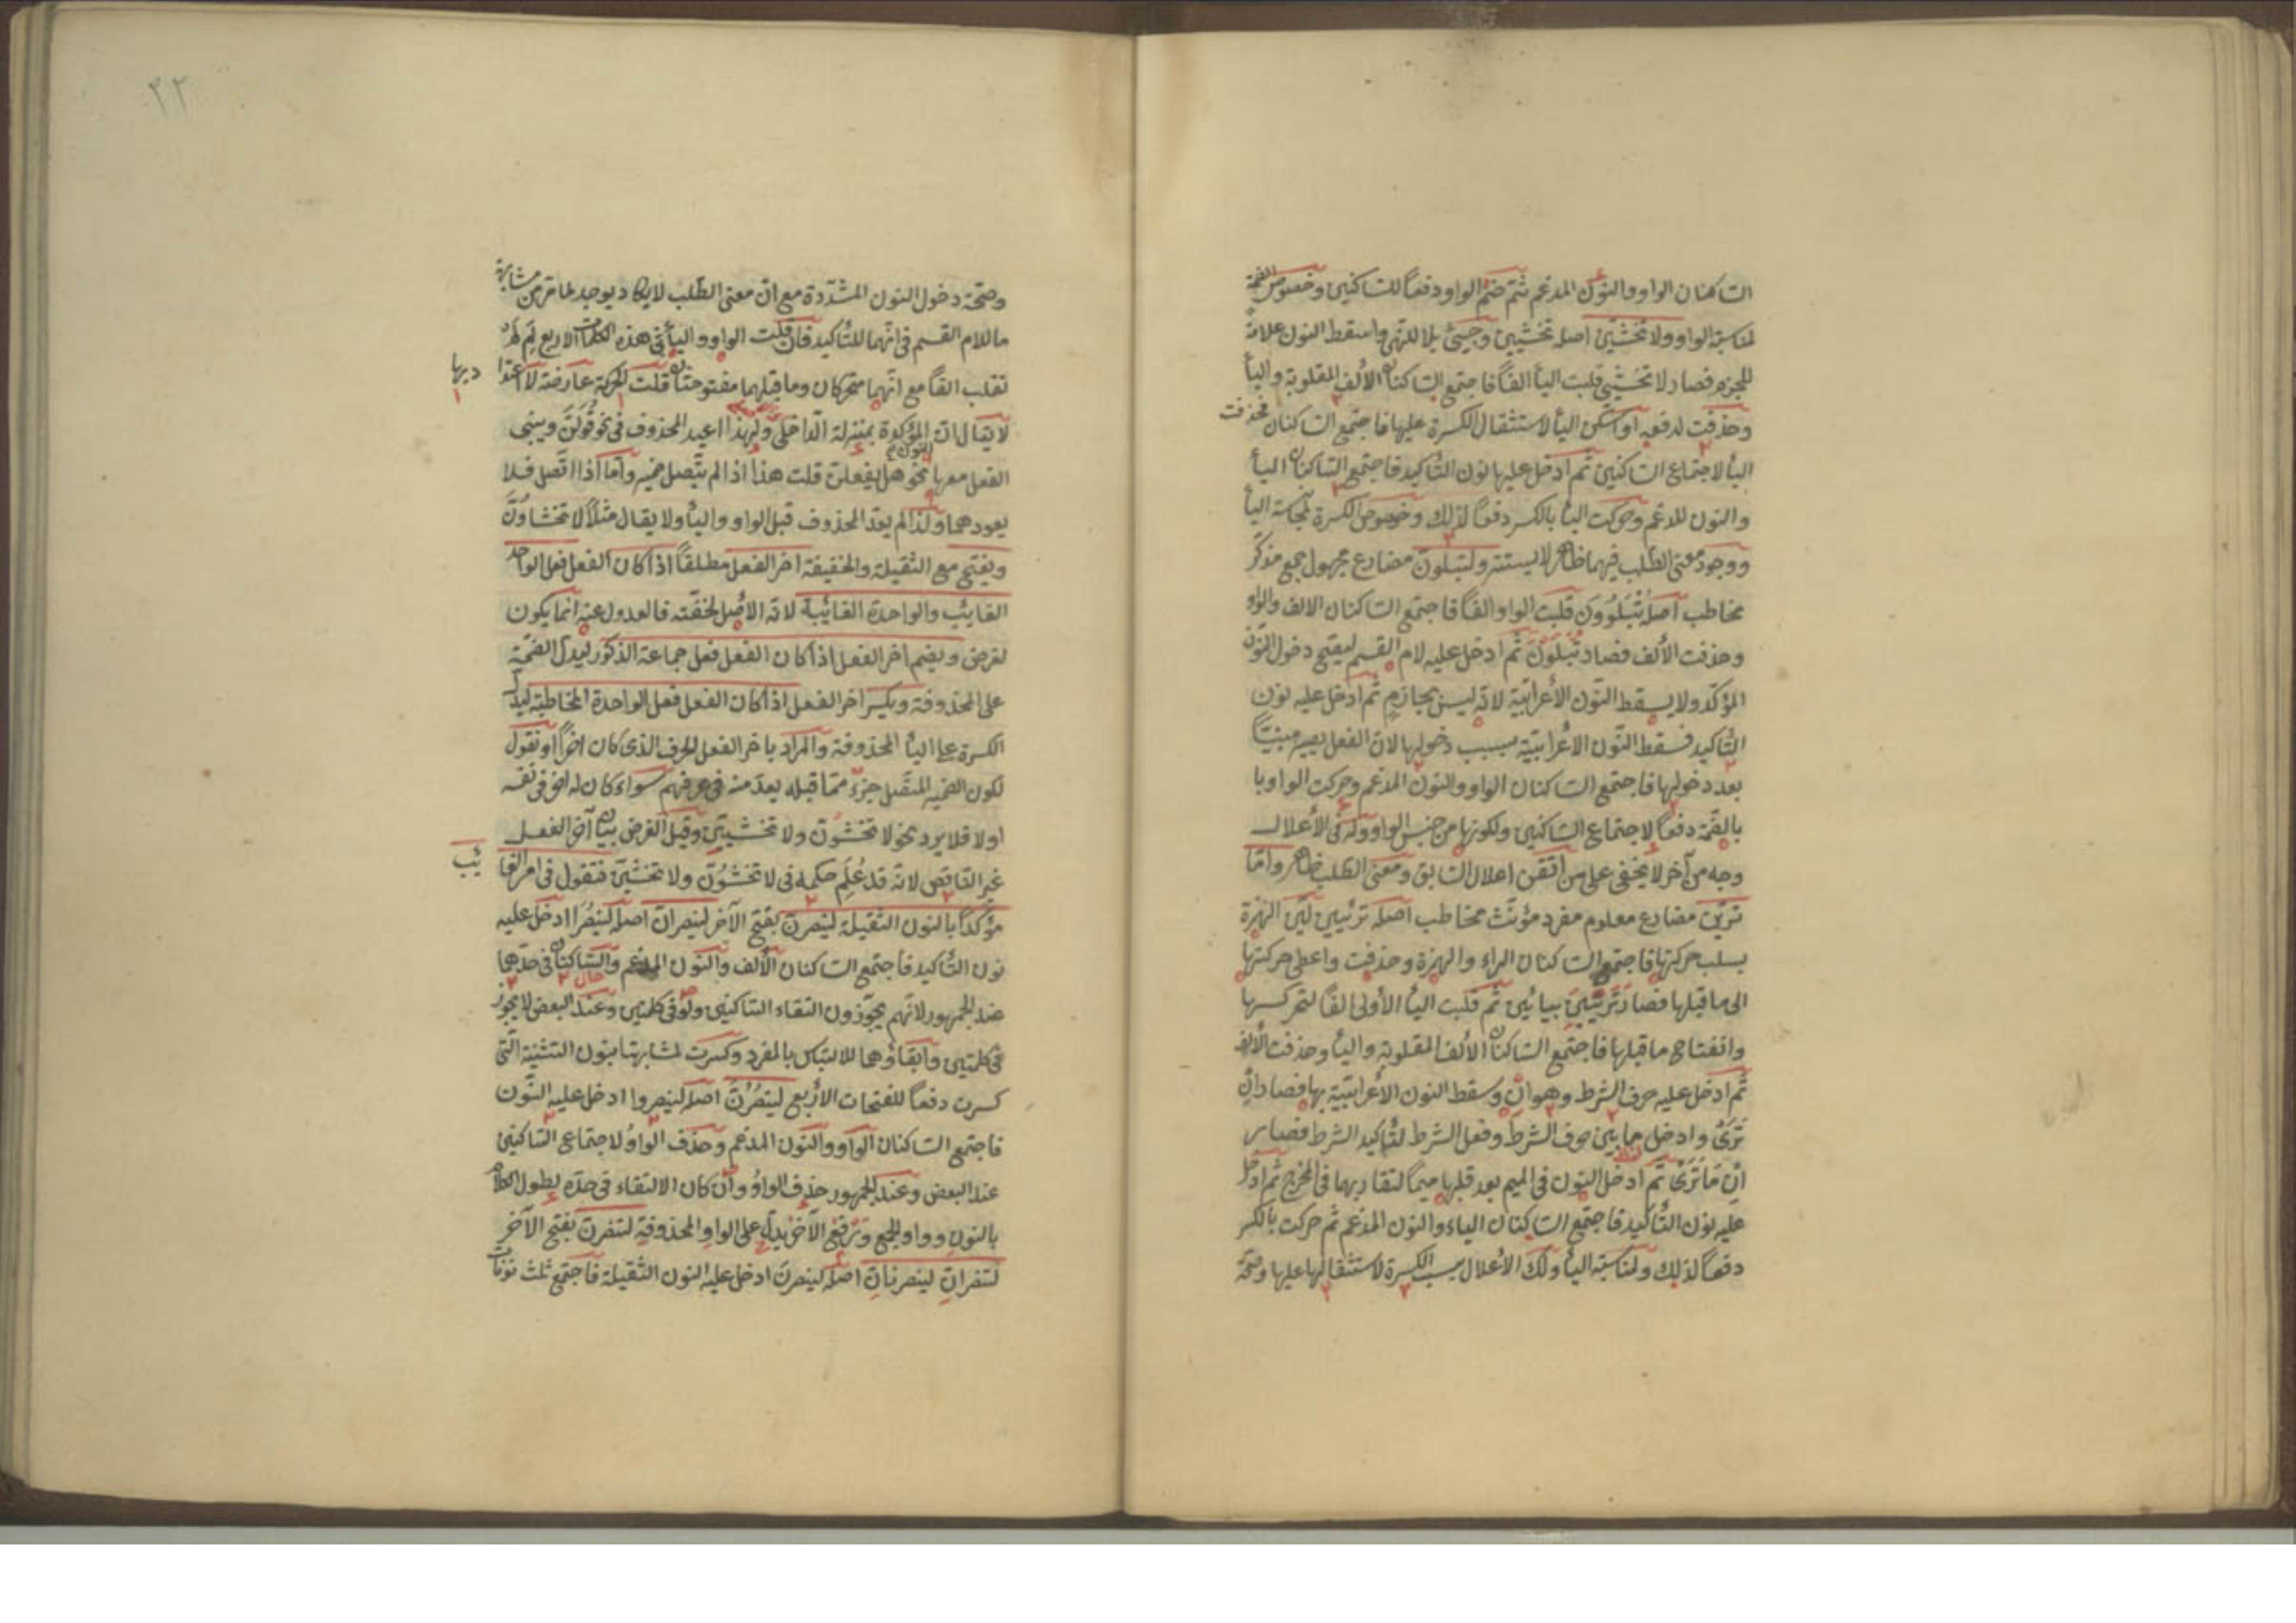 الساكنان الواو والنون المدغم ثم ضم الواو دفعاً للساكنين وخصوص الضمة
لمناسبة الواو ولا تخشينّ اصله تخشيين وجيئ بلا للنهى واسقط النون علامة
للجزم فصار لا تخشيى قلبت اليأ الفاً فاجتمع الساكنان الألف المقلوبة واليأ
وحذفت لدفعه او اسكن اليأ لاستثقال الكسرة عليها فاجتمع الساكنان فحذفت
اليأ لاجتماع الساكنين ثم ادخل عليها نون التأكيد فاجتمع الساكنان اليأ
والنون المدغم وحركت اليأ بالكسر دفعاً لذلك وخصوص الكسرة لمجانسة اليأ
ووجود معنى الطلب فيهما ظاهر لا يستتر ولتبلونّ مضارع مجهول جمع مذكر
مخاطب اصله تُبْلَوُونَ قلبت الواو الفاً فاجتمع الساكنان الالف والواو
وحذفت الألف فصار تُبْلَوْنَ ثم ادخل عليه لام القسم ليفتح دخول النون
المؤكد ولا يسقط النون الأعرابية لانه ليس بجازم ثم ادخل عليه نون
التأكيد فسقط النون الأعرابية بسبب دخولها لان الفعل يصير مبنيّاً
بعد دخولها فاجتمع الساكنان الواو والنون المدغم وحركت الواو با
بالضمة دفعاً لاجتماع الساكنين ولكونها من جنس الواو وله فى الأعلال
وجه من آخر لا يخفى على من اتقن اعلال السابق ومعنى الطلب ظاهر وامّا
تريّن مضارع معلوم مفرد مؤنث مخاطب اصله ترئيين ليّن الهمزة
بسلب حركتها فاجتمع الساكنان الراء والهمزة وحذفت واعطى حركتها
الى ما قبلها فصار تَرَيِيْنَ بيائين ثم قلبت اليأ الأولى الفاً لتحركها
وانفتاح ما قبلها فاجتمع الساكنان الألف المقلوبة واليأ وحذفت الألف
ثم ادخل عليه حرف الشرط وهو ان وسقط النون الأعرابية بها فصار ان
تَرَىْ وادخل ما بين حرف الشرط وفعل الشرط لتأكيد الشرط فصار
اِنْ مَا تَرَىْ ثم ادخل النون فى الميم بعد قلبها ميماً لتقاربهما فى المخرج ثم ادخل
عليه نون التأكيد فاجتمع الساكنان الياء والنون المدغم ثم حركت بالكسر
دفعاً لذلك ولمناسبة اليأ ولك الأعلال بسبب الكسرة لاستثقالها عليها وصحّة
٢٢
وصحّة دخول النون المشدّدة مع ان معنى الطلب لا يكاد يوجد لما مرّ من مشابهة
ما للام القسم فى انهما للتأكيد فان قلت الواو واليأ فى هذه الكلمات الاربع لِمَ لَمْ
تقلب الفاً مع انهما متحركان وما قبلهما مفتوحتان قلت الحركة عارضة لا اعتدا
د بها
لا يقال ان النون المؤكدة بمنزلة الداخل ولهذا اعيد المحذوف فى نحو قُولَنَّ ويبنى
الفعل معها نحو هل يفعلنّ قلت هذا اذا لم يتصل ضمير وامّا اذا اتّصل فلا
يعود هما ولذا لم يعد المحذوف قبل الواو واليأ ولا يقال مثلاً لا تخشاوُنَّ
ويفتح مع الثقيلة والخفيفة اخر الفعل مطلقاً اذا كان الفعل فعل الواحد
الغايب والواحدة الغائبة لانه الأصل لخفّته فالعدول عنه انما يكون
لغرض ويضم اخر الفعل اذا كان الفعل فعل جماعة الذكور ليدل الضمة
على المحذوفة ويكسر اخر الفعل اذا كان الفعل فعل الواحدة المخاطبة ليدل
الكسرة على اليأ المحذوفة والمراد باخر الفعل الحرف الذى كان اخراً او نقول
لكون الضمير المتصل جزء ممّا قبله يعدّ منه فى عرفهم سواء كان له اخر فى نفسه
اولا فلا يرد نحو لا تخشونّ ولا تخشيينّ وقيل الغرض بيان آخر الفعل
غير الناقص لانه قد عُلِم حكمه فى لا تخشوُنّ ولا تخشينّ فتقول فى امر الغا
ئب
مؤكداً بالنون الثقيلة لينصرنّ بفتح الآخر لينصرانّ اصله لينصُرَا ادخل عليه
نون التأكيد فاجتمع الساكنان الألف والنون المدغم والساكنان فى حدّها
عند الجمهور لانهم يجوّزون التقاء الساكنين ولو فى كلمتين وعند البعض لا يجوز
فى كلمتين وابقاؤهما للالتباس بالمفرد وكسرت لمشابهتها بنون التثنية التى
كسرت دفعاً للفتحات الأربع لينصُرُنَّ اصله لينصروا ادخل عليه النون
فاجتمع الساكنان الواو والنون المدغم وحذف الواوُ لاجتماع الساكنين
عند البعض وعند الجمهور حذف الواوُ وان كان الالتقاء فى حدّه لطول الكلام
بالنون وواو الجمع وترفع الآخر ليدل على الواو المحذوفة لتنصرنّ بفتح الآخر
لتنصرانّ لينصرنانّ اصله لينصرن ادخل عليه النون الثقيلة فاجتمع ثلث نونات